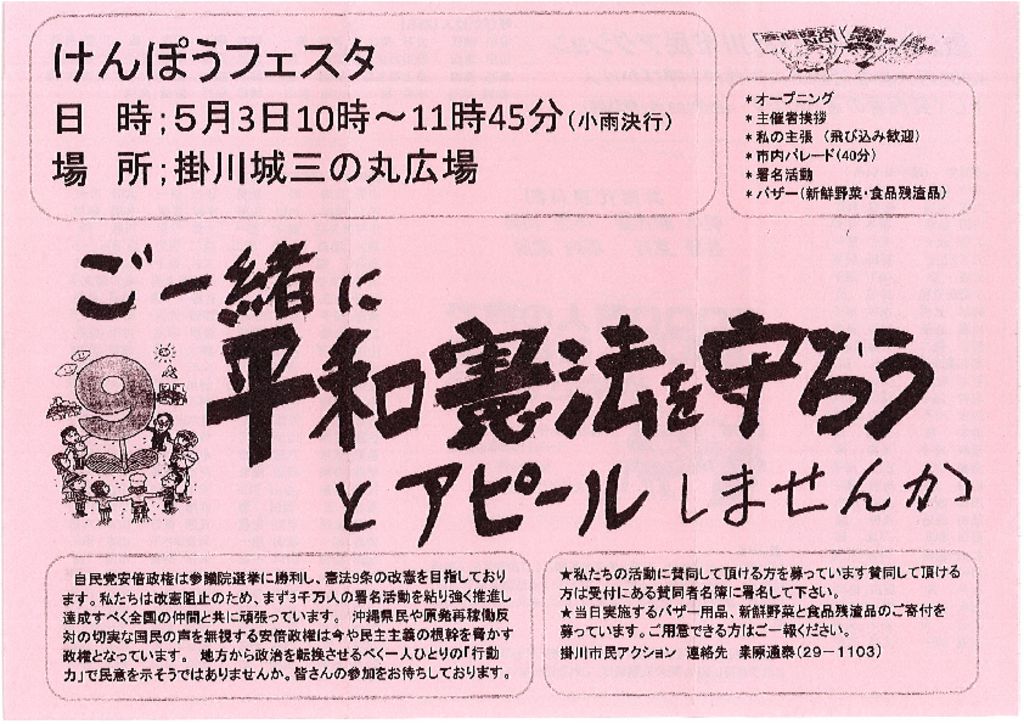 けんぽうフェスタ
日　時；５月３日10時～11時45分（小雨決行）
場　所；掛川城三の丸広場
＊オープニング
＊主催者挨拶
＊私の主張（飛び込み歓迎）
＊市内パレード（40分）
＊署名活動
＊バザー（新鮮野菜・食品残渣品）
ご一緒に
平和憲法を守ろう
とアピールしませんか
9
自民党安倍政権は参議院選挙に勝利し、憲法9条の改憲を目指しており
ます。私たちは改憲阻止のため、まず3千万人の署名活動を粘り強く推進し
達成すべく全国の仲間と共に頑張っています。　沖縄県民や原発再稼働反
対の切実な国民の声を無視する安倍政権は今や民主主義の根幹を脅かす
政権となっています。　地方から政治を転換させるべく一人ひとりの「行動
力」で民意を示そうではありませんか。皆さんの参加をお待ちしております。
★私たちの活動に賛同して頂ける方を募っています賛同して頂ける
方は受付にある賛同者名簿に署名して下さい。
★当日実施するバザー用品、新鮮野菜と食品残渣品のご寄付を
募っています。ご用意できる方はご一報ください。
掛川市民アクション　連絡先　桒原通泰（29－1103）